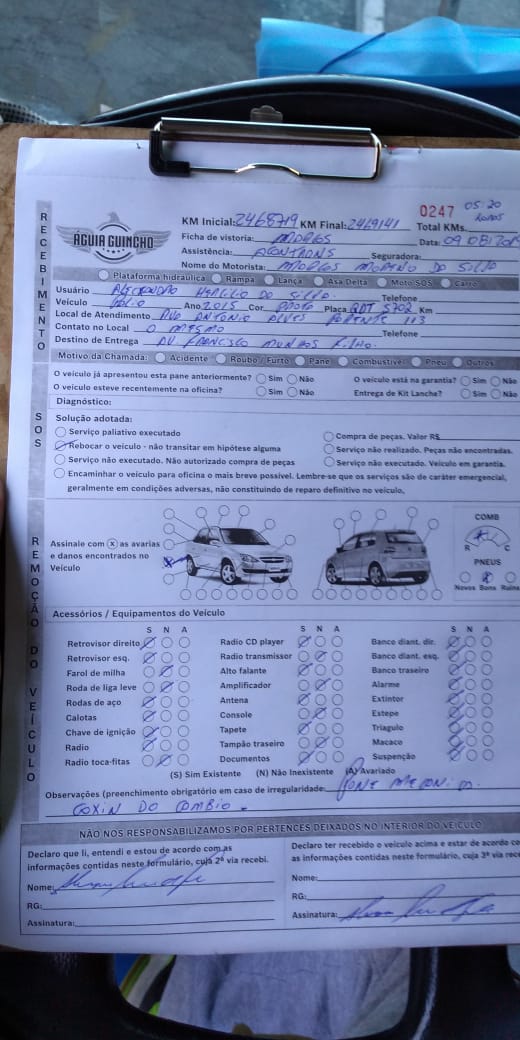 0247 05:20
ÁGUIA GUINCHO
KM Inicial: 2468719 KM Final: 2469141 Total KMs.
Ficha de vistoria: Data: 09 08
Assistência: Seguradora:
Nome do Motorista:
RECEBIMENTO
Plataforma hidráulica Rampa Lança Asa Delta Moto SOS Carro
Usuário Telefone
Veículo Ano 2015 Cor Placa 5702 Km
Local de Atendimento Antonio Alves 113
Contato no Local O mesmo Telefone
Destino de Entrega AV Francisco Munhos Filho.
Motivo da Chamada: Acidente Roubo / Furto Pane Combustível Pneu Outros
O veículo já apresentou esta pane anteriormente? Sim Não O veículo está na garantia? Sim Não
O veículo esteve recentemente na oficina? Sim Não Entrega de Kit Lanche? Sim Não
Diagnóstico:
SOS
Solução adotada:
Serviço paliativo executado Compra de peças. Valor R$
Rebocar o veículo - não transitar em hipótese alguma Serviço não realizado. Peças não encontradas.
Serviço não executado. Não autorizado compra de peças Serviço não executado. Veículo em garantia.
Encaminhar o veículo para oficina o mais breve possível. Lembre-se que os serviços são de caráter emergencial,
geralmente em condições adversas, não constituindo de reparo definitivo no veículo.
REMOÇÃO DO VEÍCULO
Assinale com (X) as avarias
e danos encontrados no
Veículo
COMB
R C
PNEUS
Novos Bons Ruins
Acessórios / Equipamentos do Veículo
S N A S N A S N A
Retrovisor direito Radio CD player Banco diant. dir.
Retrovisor esq. Radio transmissor Banco diant. esq.
Farol de milha Alto falante Banco traseiro
Roda de liga leve Amplificador Alarme
Rodas de aço Antena Extintor
Calotas Console Estepe
Chave de ignição Tapete Triagulo
Radio Tampão traseiro Macaco
Radio toca-fitas Documentos Suspenção
(S) Sim Existente (N) Não Inexistente (A) Avariado
Observações (preenchimento obrigatório em caso de irregularidade:
COXIN DO CAMBIO.
NÃO NOS RESPONSABILIZAMOS POR PERTENCES DEIXADOS NO INTERIOR DO VEÍCULO
Declaro que li, entendi e estou de acordo com as
informações contidas neste formulário, cuja 2ª via recebi.
Nome:
RG:
Assinatura:
Declaro ter recebido o veículo acima e estar de acordo co
as informações contidas neste formulário, cuja 3ª via rece
Nome:
RG:
Assinatura: